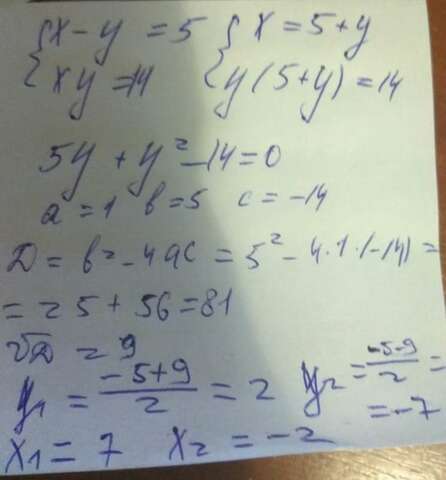 {x - y = 5 {x = 5 + y
{xy = 14 {y(5+y) = 14
5y + y² - 14 = 0
a = 1 b = 5 c = -14
D = b² - 4ac = 5² - 4·1·(-14) =
= 25 + 56 = 81
√D = 9
y₁ = (-5+9)/2 = 2 y₂ = (-5-9)/2 =
= -7
x₁ = 7 x₂ = -2